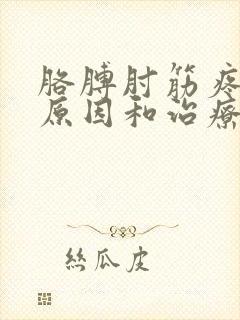 胳膊肘筋疼
原因和治療
絲瓜皮